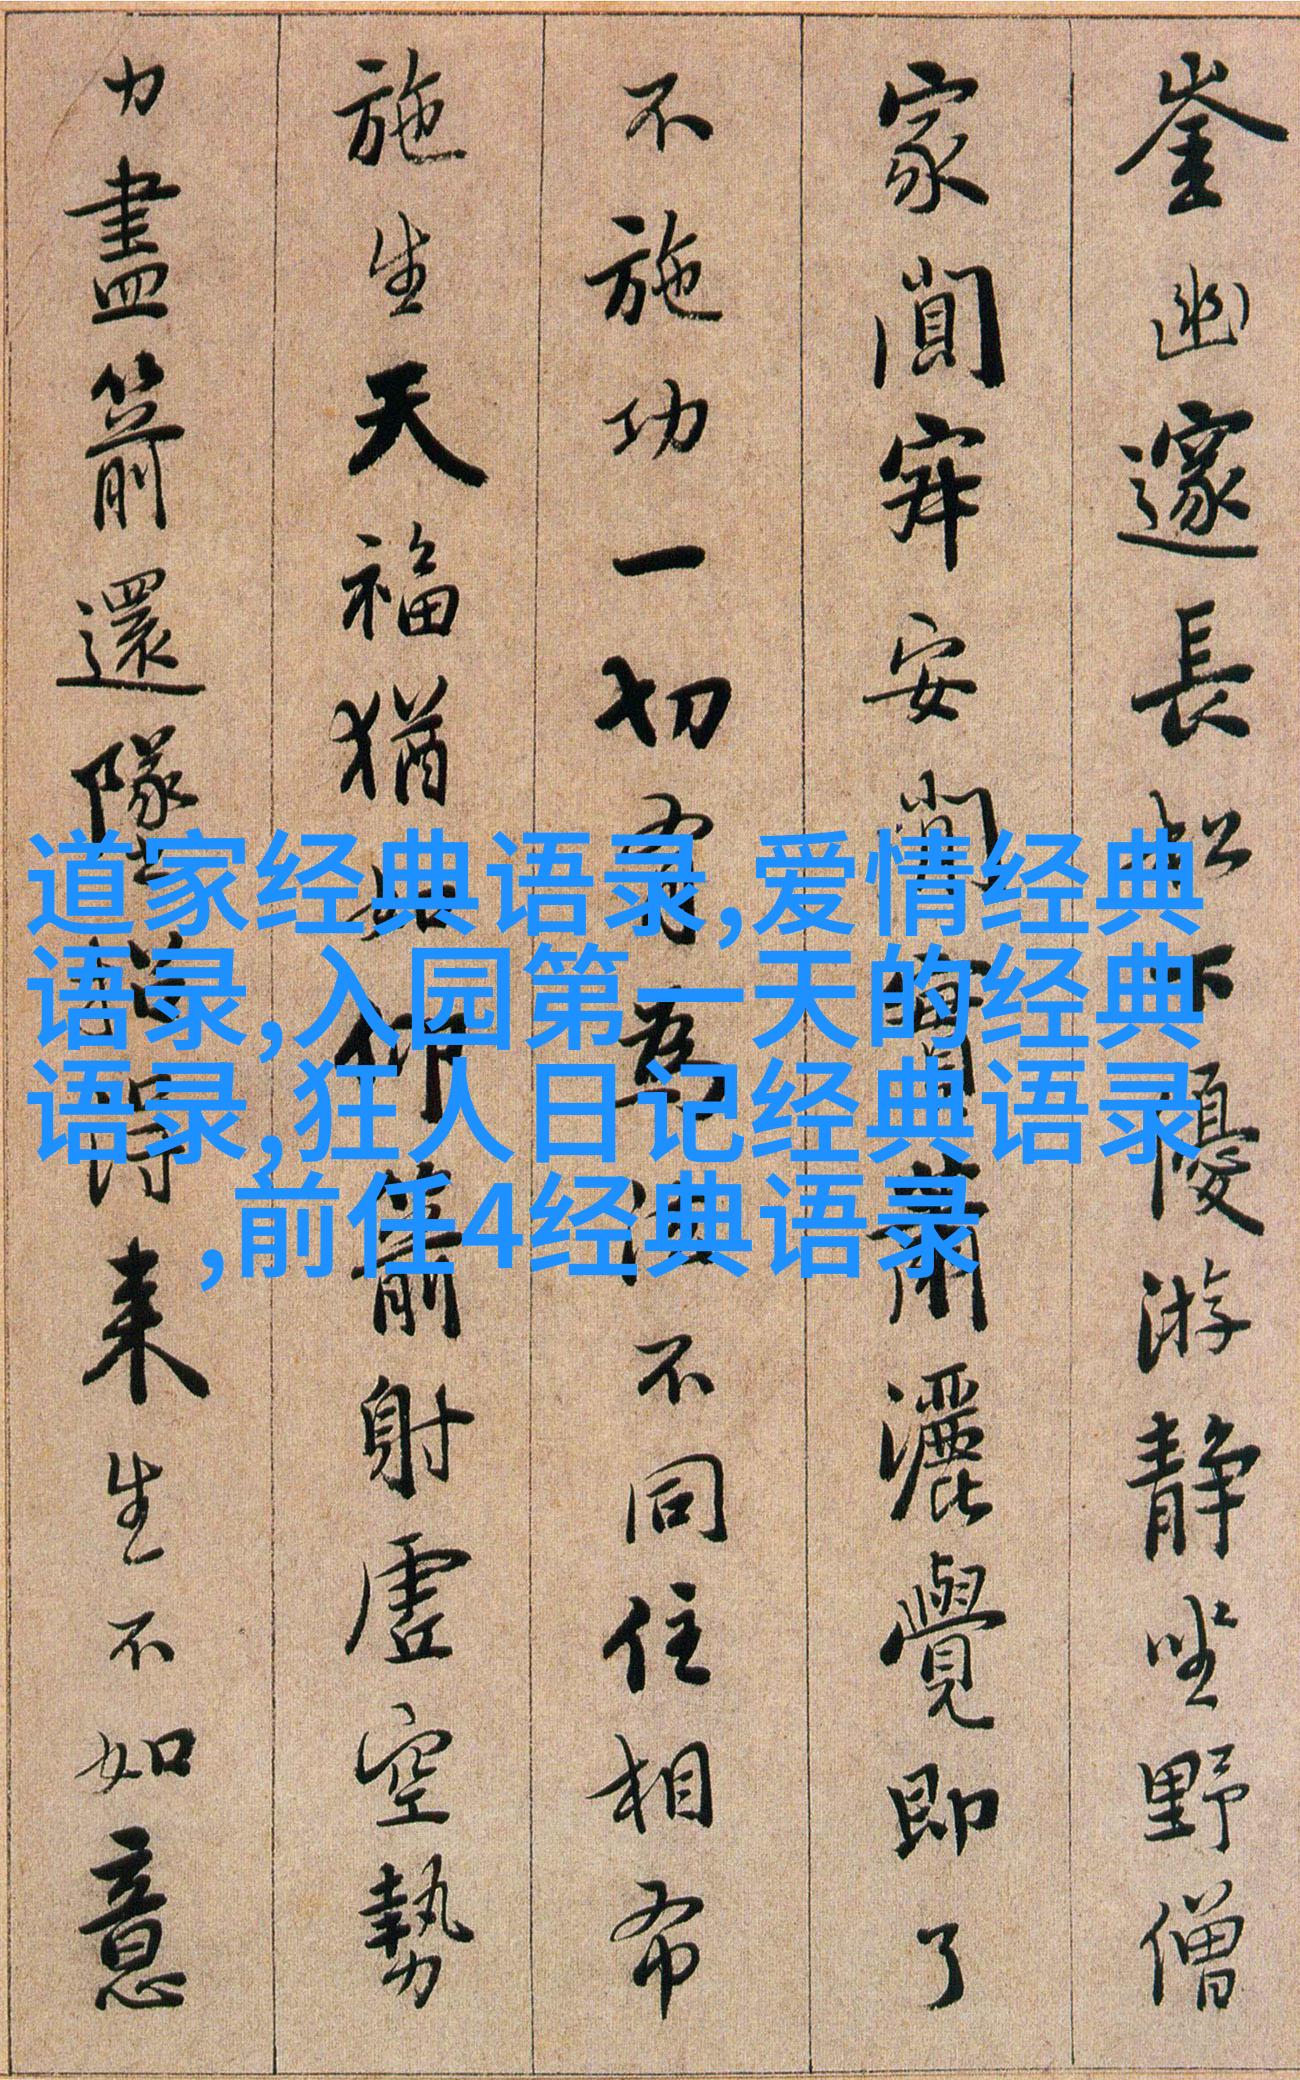 崟幽邃長松下優游靜坐野僧
家闃寂安閑實蕭灑覺即了
不施功一切有為法不同住相布
施生天福猶如仰箭射虛空勢
力盡箭還墜招得來生不如意
道家经典语录,爱情经典
语录,入园第一天的经典
语录,狂人日记经典语录
,前任4经典语录